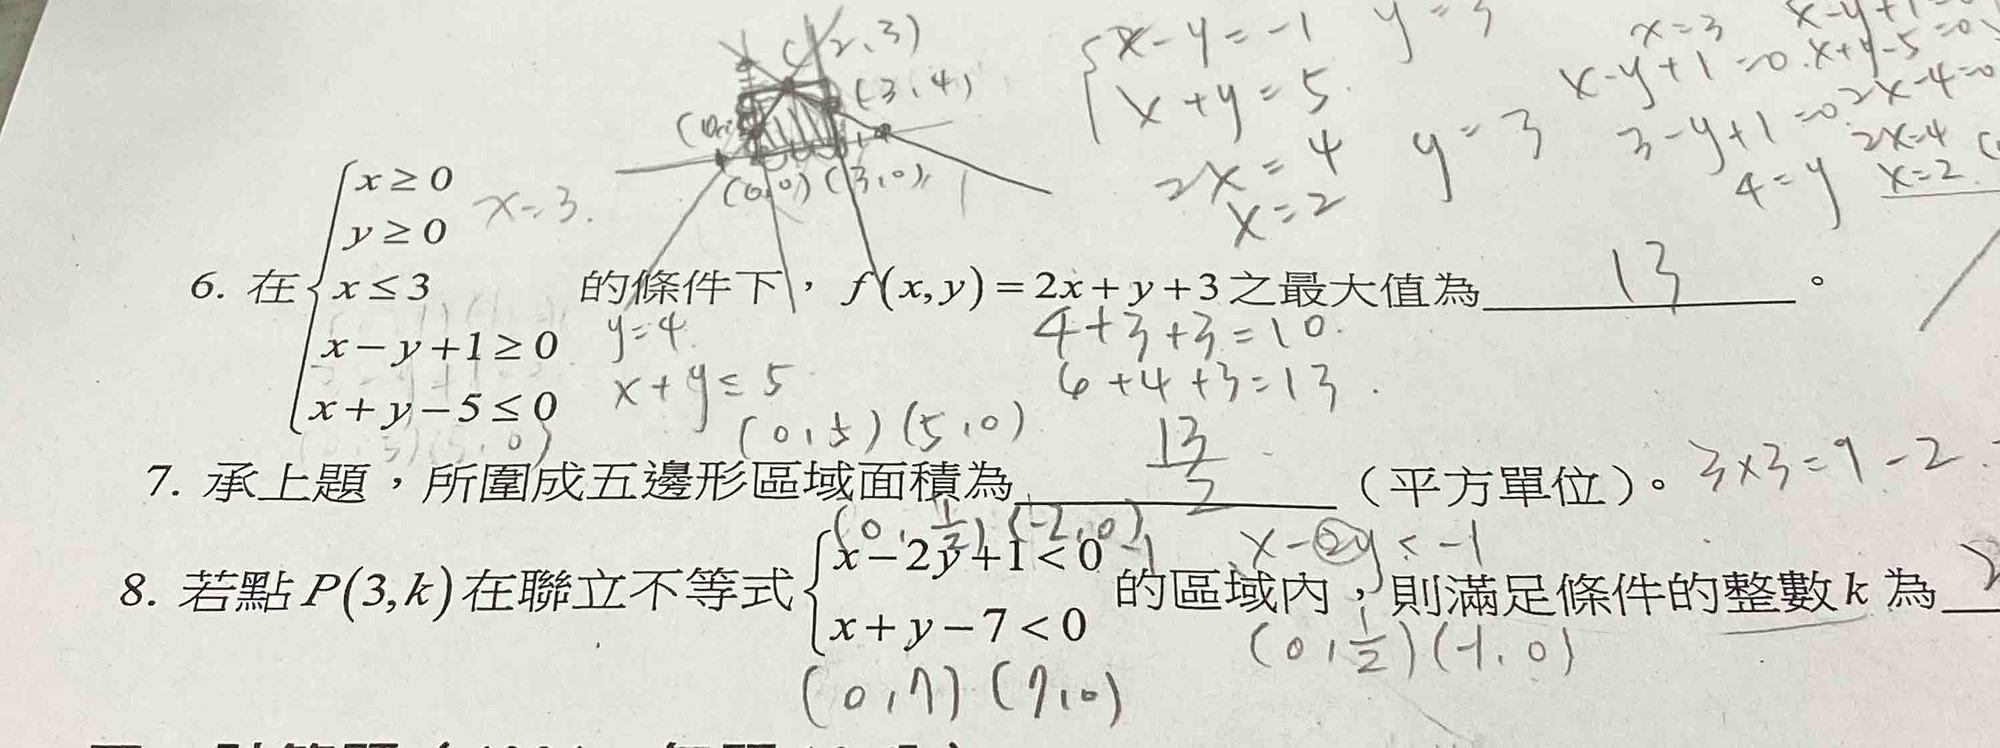 (2,3)
(3,4)
(0,0) (3,0)
x-y=-1
x+y=5
2x=4
x=2
y=3
x=3
x-y+1=0
3-y+1=0
4=y
x+y-5=0
2x-4=0
2x=4
x=2
x≥0
y≥0 x=3.
6. 在 x≤3 的條件下，f(x,y)=2x+y+3之最大值為 13 。
x-y+1≥0 y=4 4+3+3=10.
x+y-5≤0 x+y≤5 6+4+3=13.
(0,5)(5,0)
7. 承上題，所圍成五邊形區域面積為 13/2 （平方單位）。 3×3=9-2
(0,1/2) (-2,0)
x-2y+1<0 -1 x-2y<-1
8. 若點P(3,k)在聯立不等式 的區域內，則滿足條件的整數k為
x+y-7<0 (0,1/2)(-1,0)
(0,7) (7,0)